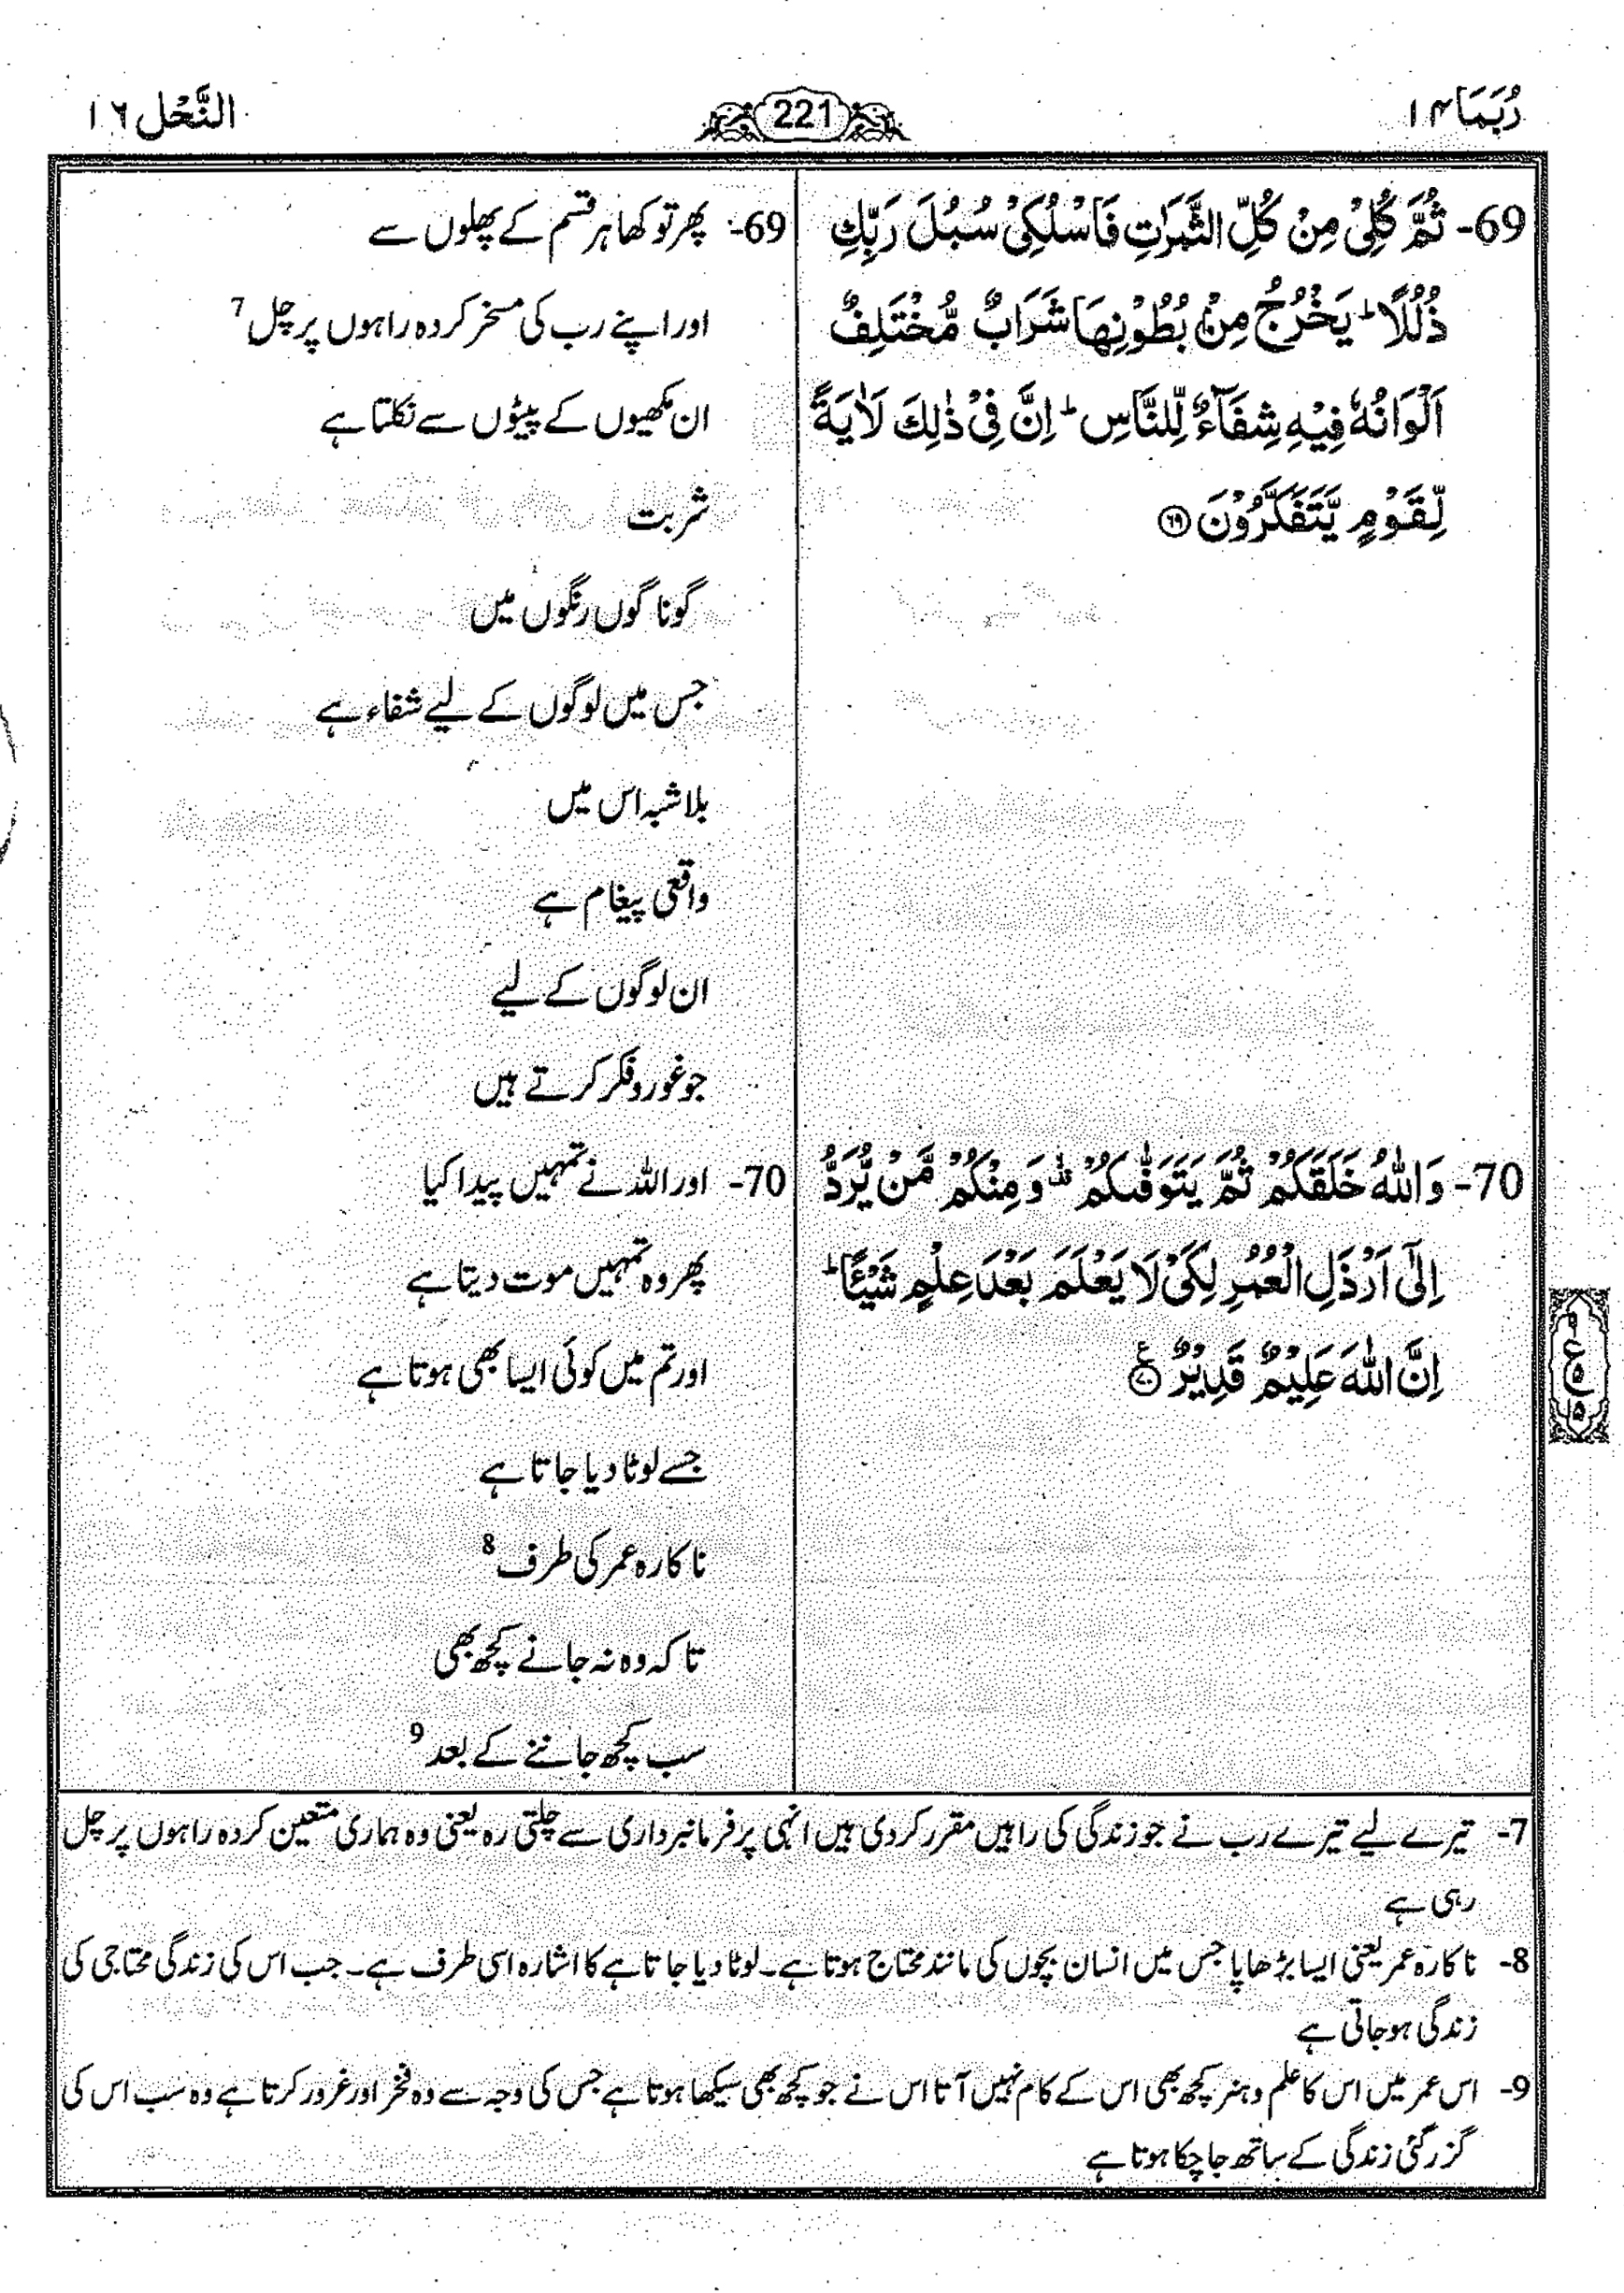 رُبَمَا ۱۴
221
النَّحْل ۱۶
69- ثُمَّ كُلِیْ مِنْ كُلِّ الثَّمَرٰتِ فَاسْلُكِیْ سُبُلَ رَبِّكِ
ذُلُلًا ؕ یَخْرُجُ مِنْۢ بُطُوْنِهَا شَرَابٌ مُّخْتَلِفٌ
اَلْوَانُهٗ فِیْهِ شِفَآءٌ لِّلنَّاسِ ؕ اِنَّ فِیْ ذٰلِكَ لَاٰیَةً
لِّقَوْمٍ یَّتَفَكَّرُوْنَ ۶۹
69- پھر تو کھا ہر قسم کے پھلوں سے
اور اپنے رب کی مسخر کردہ راہوں پر چل 7
ان مکھیوں کے پیٹوں سے نکلتا ہے
شربت
گونا گوں رنگوں میں
جس میں لوگوں کے لیے شفاء ہے
بلاشبہ اس میں
واقعی پیغام ہے
ان لوگوں کے لیے
جو غور و فکر کرتے ہیں
70- وَاللّٰهُ خَلَقَكُمْ ثُمَّ یَتَوَفّٰىكُمْ ۙ۫ وَ مِنْكُمْ مَّنْ یُّرَدُّ
اِلٰۤى اَرْذَلِ الْعُمُرِ لِكَیْ لَا یَعْلَمَ بَعْدَ عِلْمٍ شَیْـًٔا ؕ
اِنَّ اللّٰهَ عَلِیْمٌ قَدِیْرٌ ۷۰ ع
70- اور اللہ نے تمہیں پیدا کیا
پھر وہ تمہیں موت دیتا ہے
اور تم میں کوئی ایسا بھی ہوتا ہے
جسے لوٹا دیا جاتا ہے
ناکارہ عمر کی طرف 8
تاکہ وہ نہ جانے کچھ بھی
سب کچھ جاننے کے بعد 9
ع
۵
۱۵
7- تیرے لیے تیرے رب نے جو زندگی کی راہیں مقرر کر دی ہیں انہی پر فرمانبرداری سے چلتی رہ یعنی وہ ہماری متعین کردہ راہوں پر چل
رہی ہے
8- ناکارہ عمر یعنی ایسا بڑھاپا جس میں انسان بچوں کی مانند محتاج ہوتا ہے۔ لوٹا دیا جاتا ہے کا اشارہ اسی طرف ہے۔ جب اس کی زندگی محتاجی کی
زندگی ہو جاتی ہے
9- اس عمر میں اس کا علم و ہنر کچھ بھی اس کے کام نہیں آتا اس نے جو کچھ بھی سیکھا ہوتا ہے جس کی وجہ سے وہ فخر اور غرور کرتا ہے وہ سب اس کی
گزر گئی زندگی کے ساتھ جا چکا ہوتا ہے